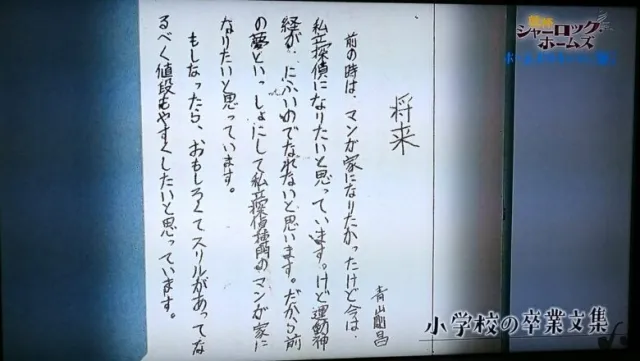 将来
青山剛昌
前の時は、マンガ家になりたかったけど今は、
私立探偵になりたいと思っています。けど運動神
経が、にぶいのでなれないと思います。だから前
の夢といっしょにして私立探偵専門のマンガ家に
なりたいと思っています。
もしなったら、おもしろくてスリルがあってな
るべく値段もやすくしたいと思っています。
シャーロック
ホームズ
小学校の卒業文集